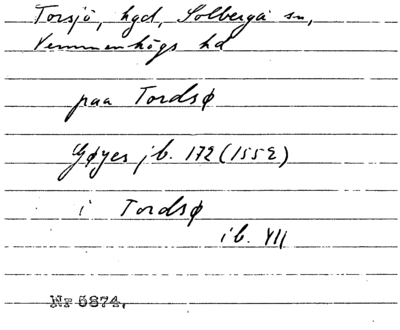 Torsjö, hgd, Solberga sn,
Vemmenhögs hd
paa Tordsø
Gøyes jb. 172 (1552)
i Tordsø
ib. VII
Nr 5874,